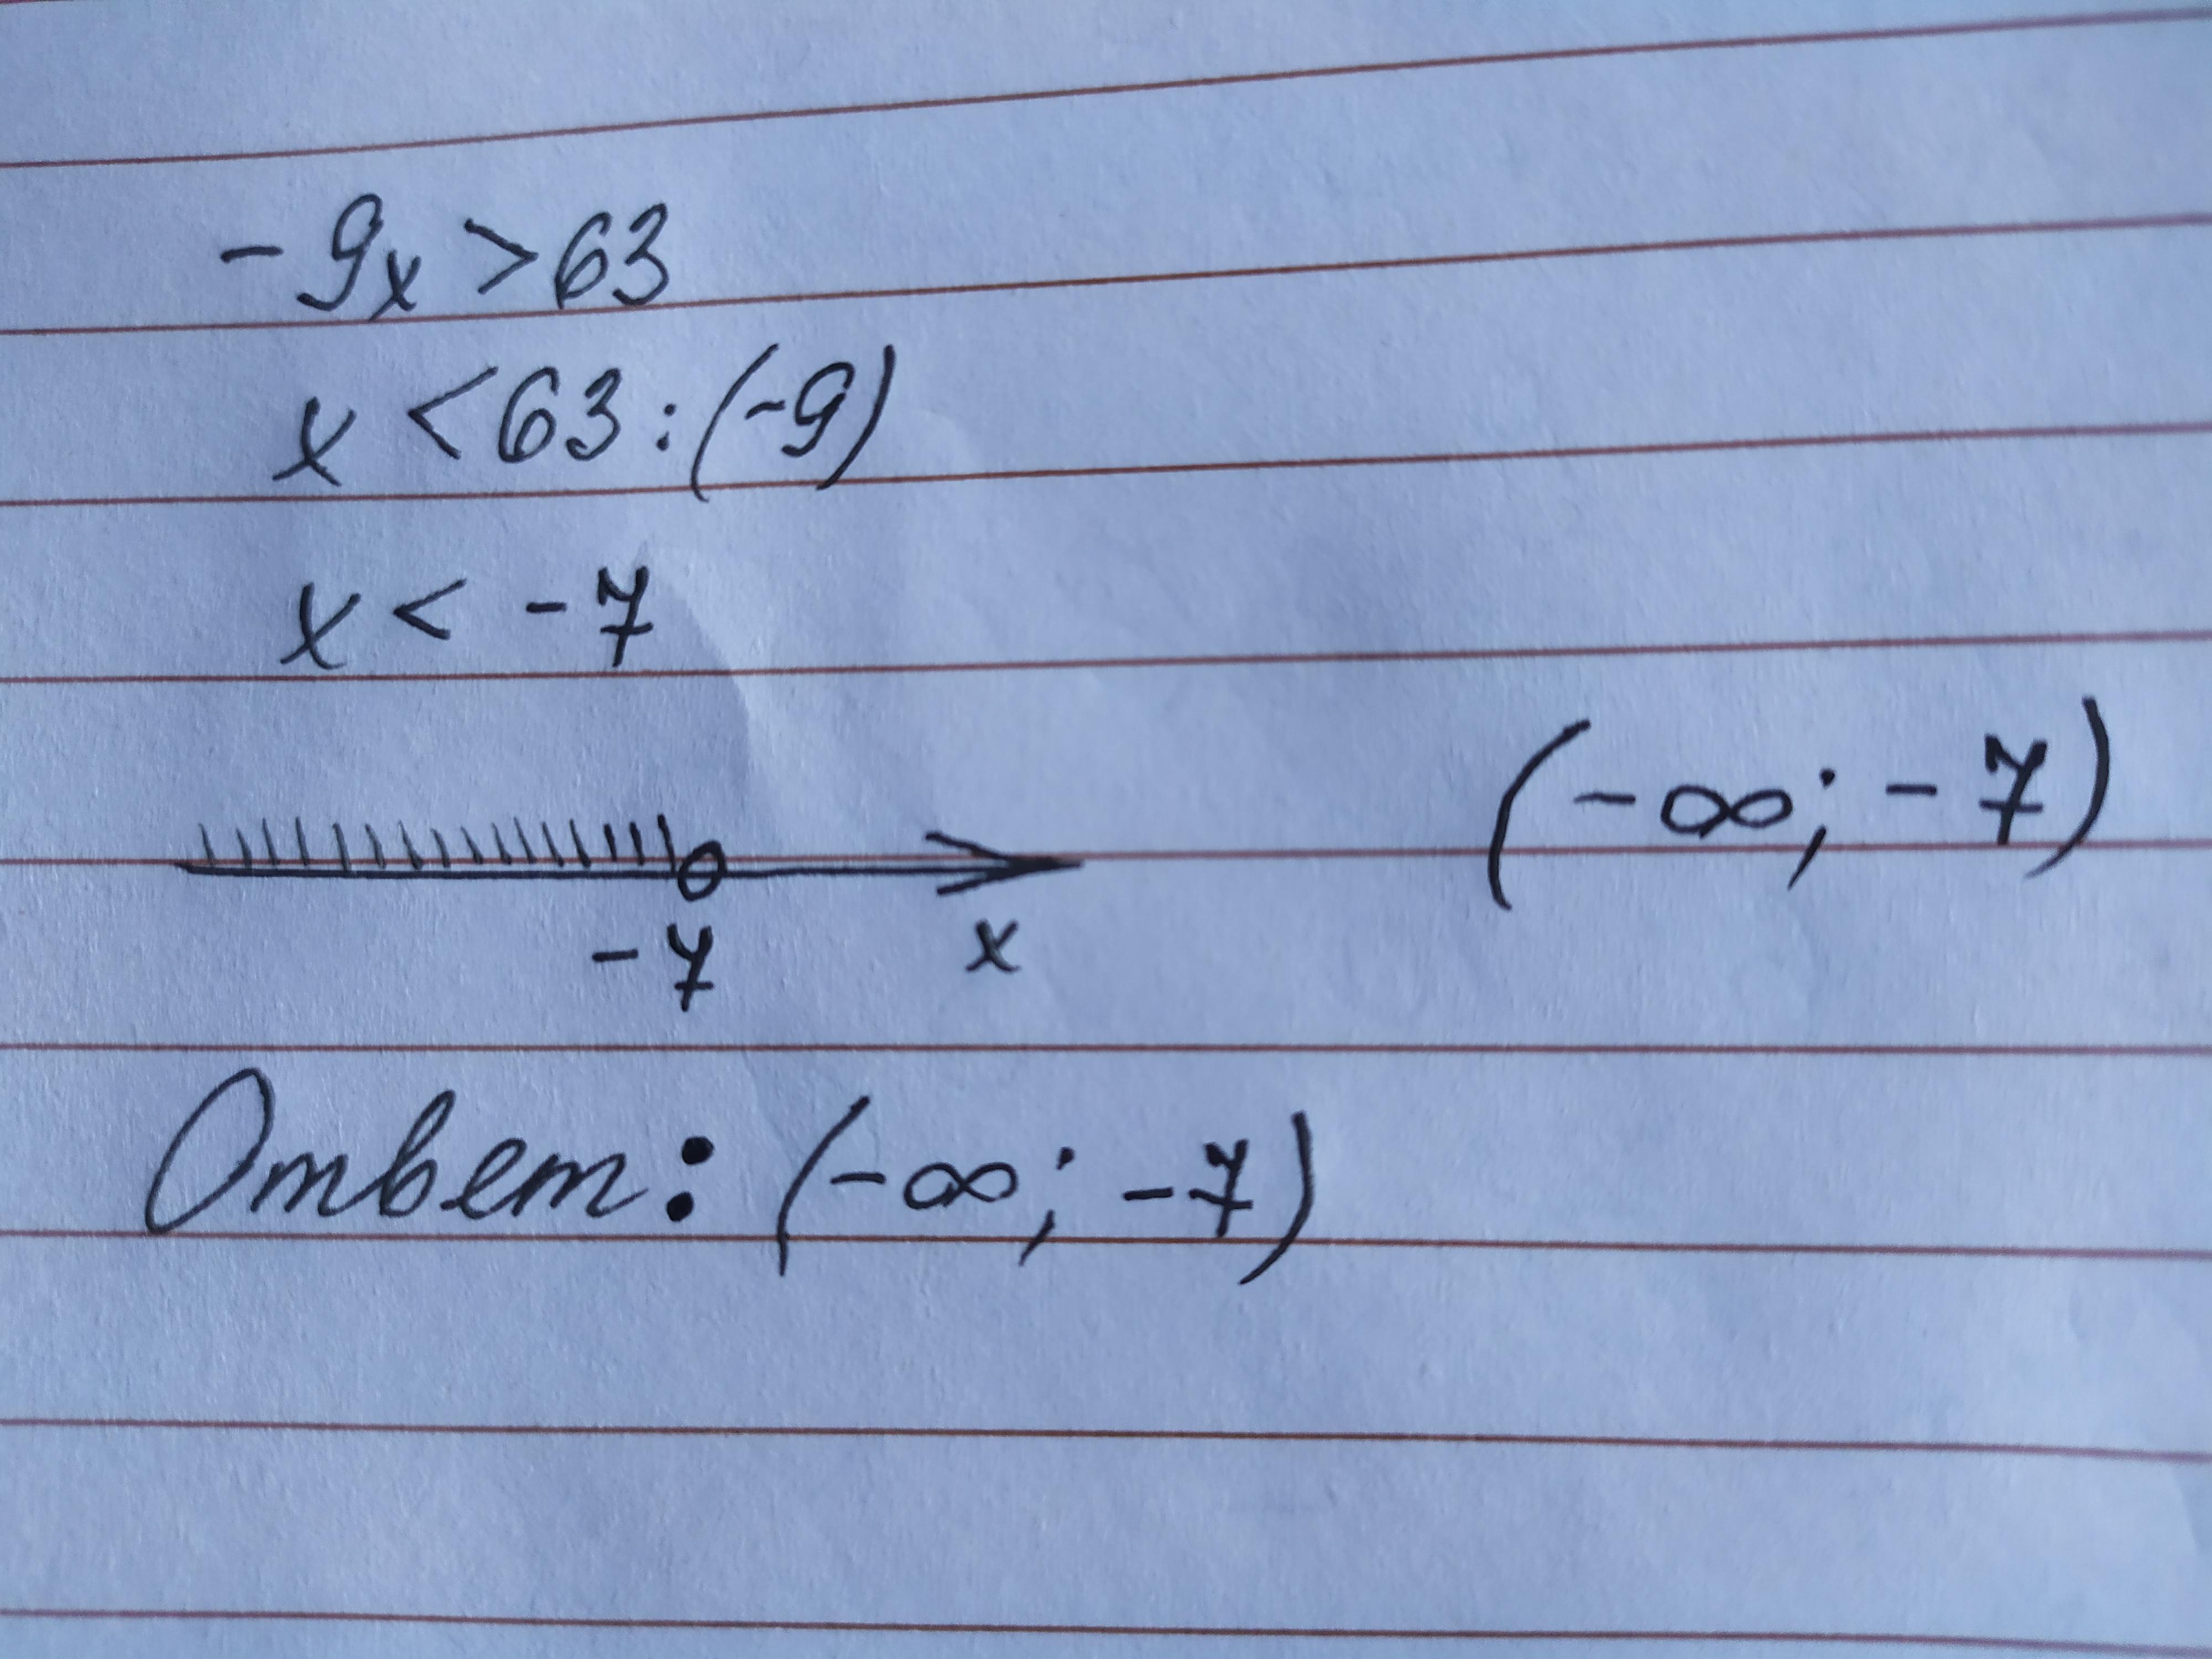 -9x > 63
x < 63 : (-9)
x < -7
(-∞; -7)
-7 x
Ответ: (-∞; -7)